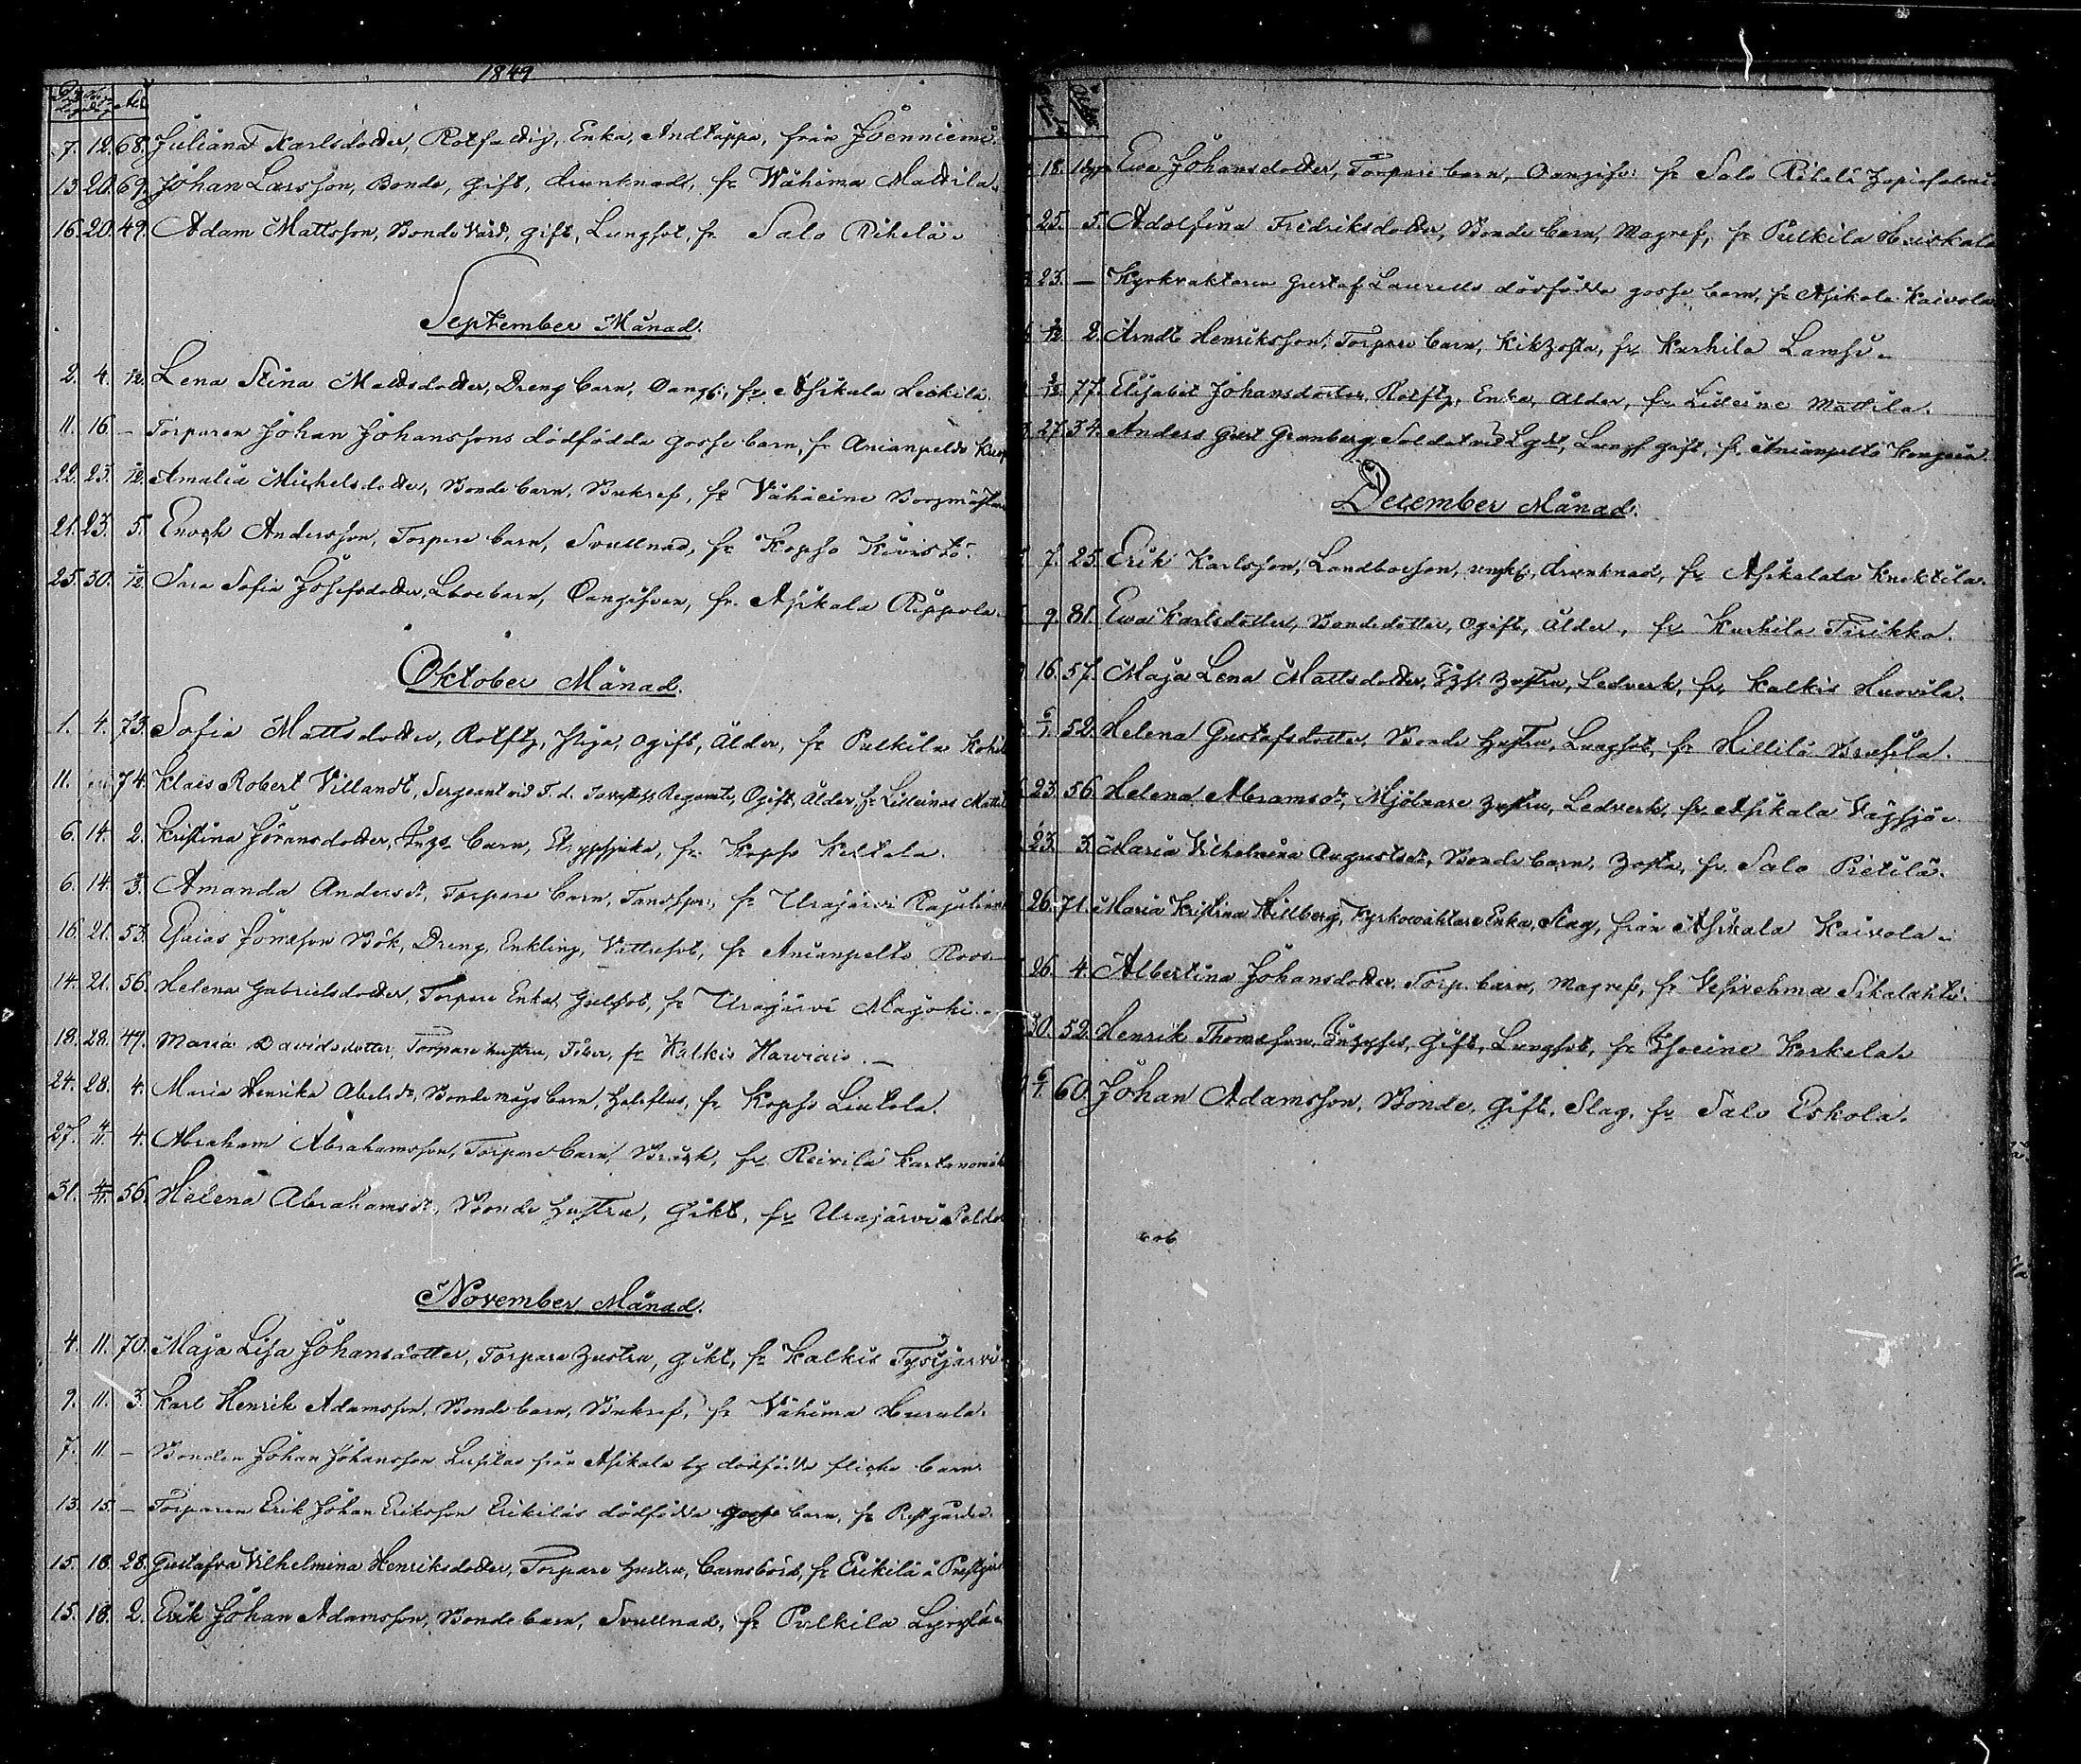 1849
7. 12. 68. Juliana Karlsdotter, Rotfattig, Enka, Andtäppa, från Joenniemi.
13 20. 69. Johan Larsson, Bonde, gift, drunknade, fr Wähima Mattila.
16. 20. 49. Adam Mattsson, Bonde Värd, gift, Lungsot, fr Salo Rihelä.
September Månad.
2. 4. Lena Stina Mattsdotter, Dreng barn, Oangifv, fr Asikala Leikilä.
11. 16. – Torparen Johan Johanssons dödfödda gosse barn, fr Anianpelto
22. 23. Amalia Michelsdotter, Bonde barn, Bukref, fr Vähäeine Borgmästare
21. 23. 5. Enoch Andersson, Torpare barn, Svullnad, fr Kopso Kivistö.
25. 30. Sara Sofia Josefsdotter, barn, Oangifven, fr. Asikala Reppola.
Oktober Månad.
1. 4. 73. Sofia Mattsdotter, Rotftg, Piga, ogift, Ålder, fr Pulkila
11. 74. Klaes Robert Villandt, Sergeant vid F. d. Tavastehus Regemte, Ogift, Ålder, fr
6. 14. 2. Kristina Göransdotter, barn, Strypsjuka, fr. Kopso Keltala.
6. 14. Amanda Andersdr, Torpare barn, fr Urajärvi
16. 21. 53. Esaias Jönsson Bök, Dreng, Enkling, Vattusot, fr Anianpelto Roos
14. 21. 56. Helena Gabrielsdotter, Torpare Enka, Gulsot, fr Urajärvi Majoki.
18. 28. 47. Maria Davidsdotter, Torpare hustru, Feber, fr Kalkis Harviais. –
24. 28. 4. Maria Henrika Abelsdr, Bonde mågs barn, Halsflus, fr Kopso Liutola.
27. 4/11 4. Abraham Abrahamsson, Torpare barn, Bråck, fr Reivilä
31. 4/11 56. Helena Abrahamsdr, Bonde hustru, Gikt, fr Urajärvi
November Månad.
4. 11. 70. Maja Lisa Johansdotter, Torpare hustru, gikt, fr Kalkis
9. 11. 3. Karl Henrik Adamsson, Bonde barn, Bukref, fr Vähima Hurula.
7. 11 – Bonden Johan Johansson från Asikala by dödfödda flicke barn.
13. 15 – Torparen Erik Johan Eriksson Erikiläs dödfödda gosse barn, fr Prestgården.
15. 18. 28. Gustafva Vilhelmina Henriksdotter, Torpare hustru, Barnsbörd, fr Erikilä
15. 18. 2. Erik Johan Adamsson, Bonde barn, Svullnad, fr Pulkila
18. Eva Johansdotter, Torpare barn, Oangifv: fr Salo
25. 5. Adolfina Fridriksdotter, Bonde barn, Magref, fr Pulkila Heiskala
23. – Kyrkvaktaren Gustaf Laurells dödfödda gosse barn, fr Asikala Kaivola
2/12 2. Arndt Henriksson, Torpare barn, Kikhosta, fr Kurhila Lamsi.
2/12 77. Elisabet Johansdotter, Rotftg, Enka, Ålder, fr Mattila.
27. 34. Anders Gust Granberg, Soldat vid gift, fr. Anianpelto
December Månad.
7. 25. Erik Karlsson, Landboeson, drunknad, fr Asikala Knektila.
9. 81. Eva Karlsdotter, Bondedotter, Ogift, Ålder, fr Kurhila Tirikka.
16. 57. Maja Lena Mattsdotter, hustru, Ledverk, fr. Kalkis Huovila.
6/1 52. Helena Gustafsdotter, Bonde hustru, Lungsot, fr Hillilä
23. 56. Helena Abramsdr, Mjölnare hustru, Ledverk, fr. Asikala Vägsjö.
23. 3. Maria Vilhelmina Augustsdr, Bonde barn, hosta, fr. Salo Pietilä.
26. 71. Maria Kristina Hillberg, Kyrkowaktare Enka, Slag, från Asikala Kaivola.
26. 4. Albertina Johansdotter, Torp. barn, Magref, fr Vesivehma Sikalahti.
30. 52. Henrik Thomasson, Gift, Lungsot, fr Korkela.
6/1 60. Johan Adamsson, Bonde, Gift, Slag, fr Salo Eskola.